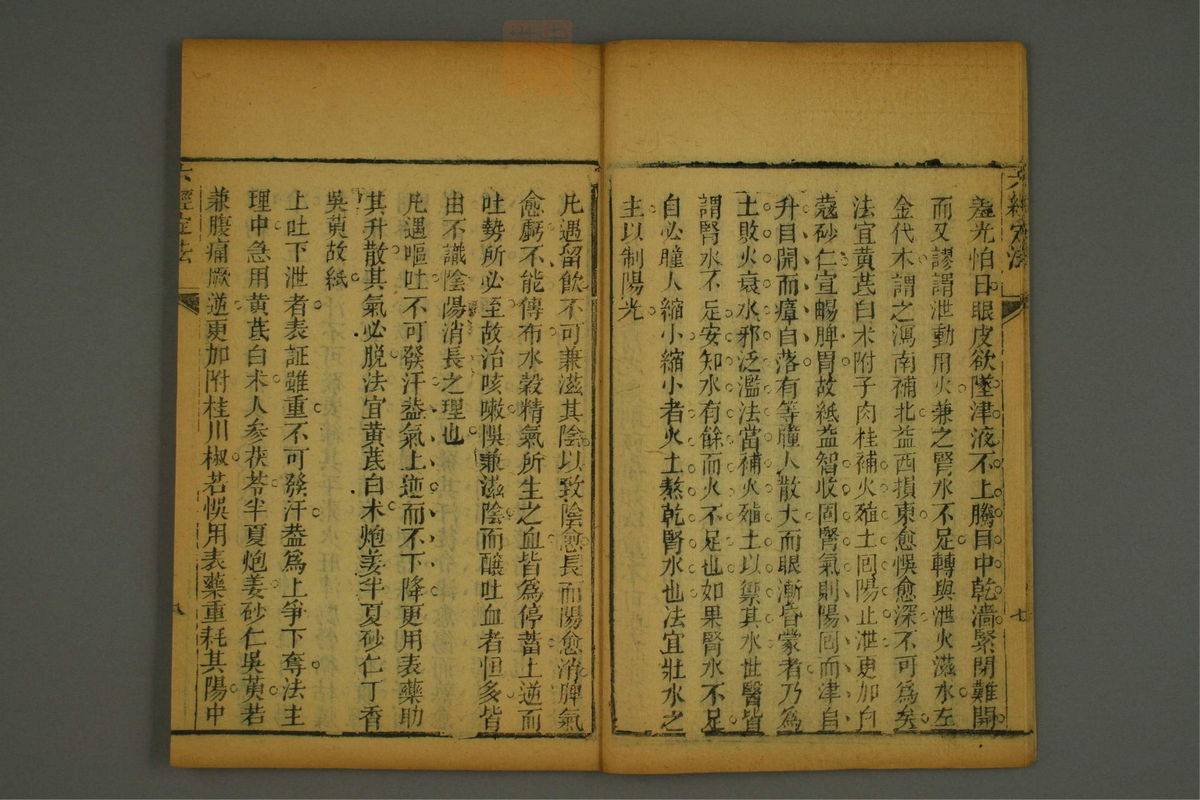 六經定法
羞光怕日眼皮欲墜津液不上騰目中乾濇緊閉難開
而又謬謂泄動用火兼之腎水不足轉與泄火滋水左
金代木謂之瀉南補北益西損東愈悞愈深不可為矣
法宜黃茋白术附子肉桂補火殖土囘陽止泄更加白
蔻砂仁宣暢脾胃故紙益智收固腎氣則陽囘而津自
升目開而瘴自落有等瞳人散大而眼漸昏蒙者乃為
土敗火衰水邪泛濫法當補火殖土以禦其水世醫皆
謂腎水不足安知水有餘而火不足也如果腎水不足
自必瞳人縮小縮小者火土熬乾腎水也法宜壯水之
主以制陽光
七
凢遇留飲不可兼滋其陰以致陰愈長而陽愈消脾氣
愈虧不能傳布水穀精氣所生之血皆為停蓄上逆而
吐勢所必至故治咳嗽悞兼滋陰而釀吐血者恒多皆
由不識陰陽消長之理也
凢遇嘔吐不可發汗葢氣上逆而不下降更用表藥助
其升散其氣必脫法宜黃茋白术炮姜半夏砂仁丁香
吳萸故紙
上吐下泄者表証雖重不可發汗葢為上爭下奪法主
理中急用黃茋白术人參茯苓半夏炮姜砂仁吳萸若
兼腹痛厥逆更加附桂川椒若悞用表藥重耗其陽中
六經定法
八